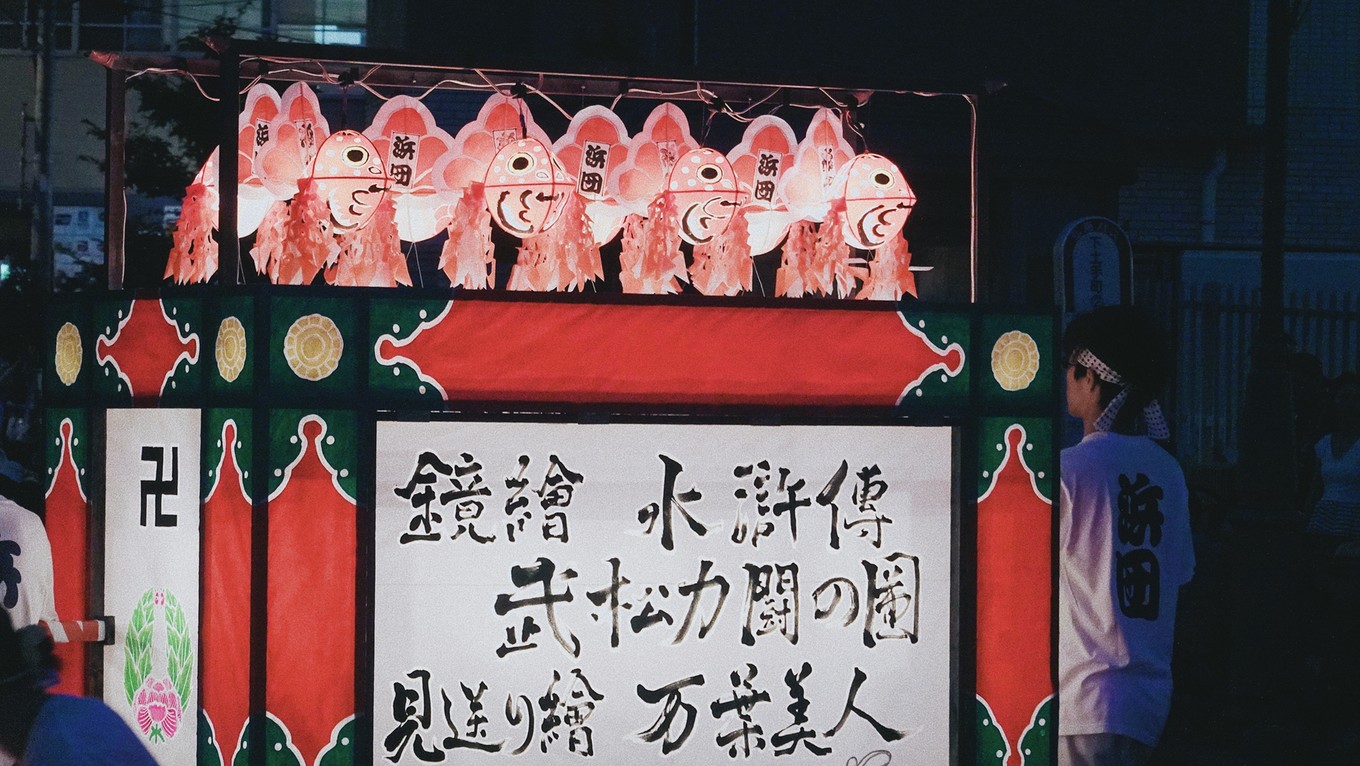 浜団
浜団
浜団
浜団
卍
鏡繪 水滸傳
武松力闘の圖
見送り繪 万葉美人
浜団